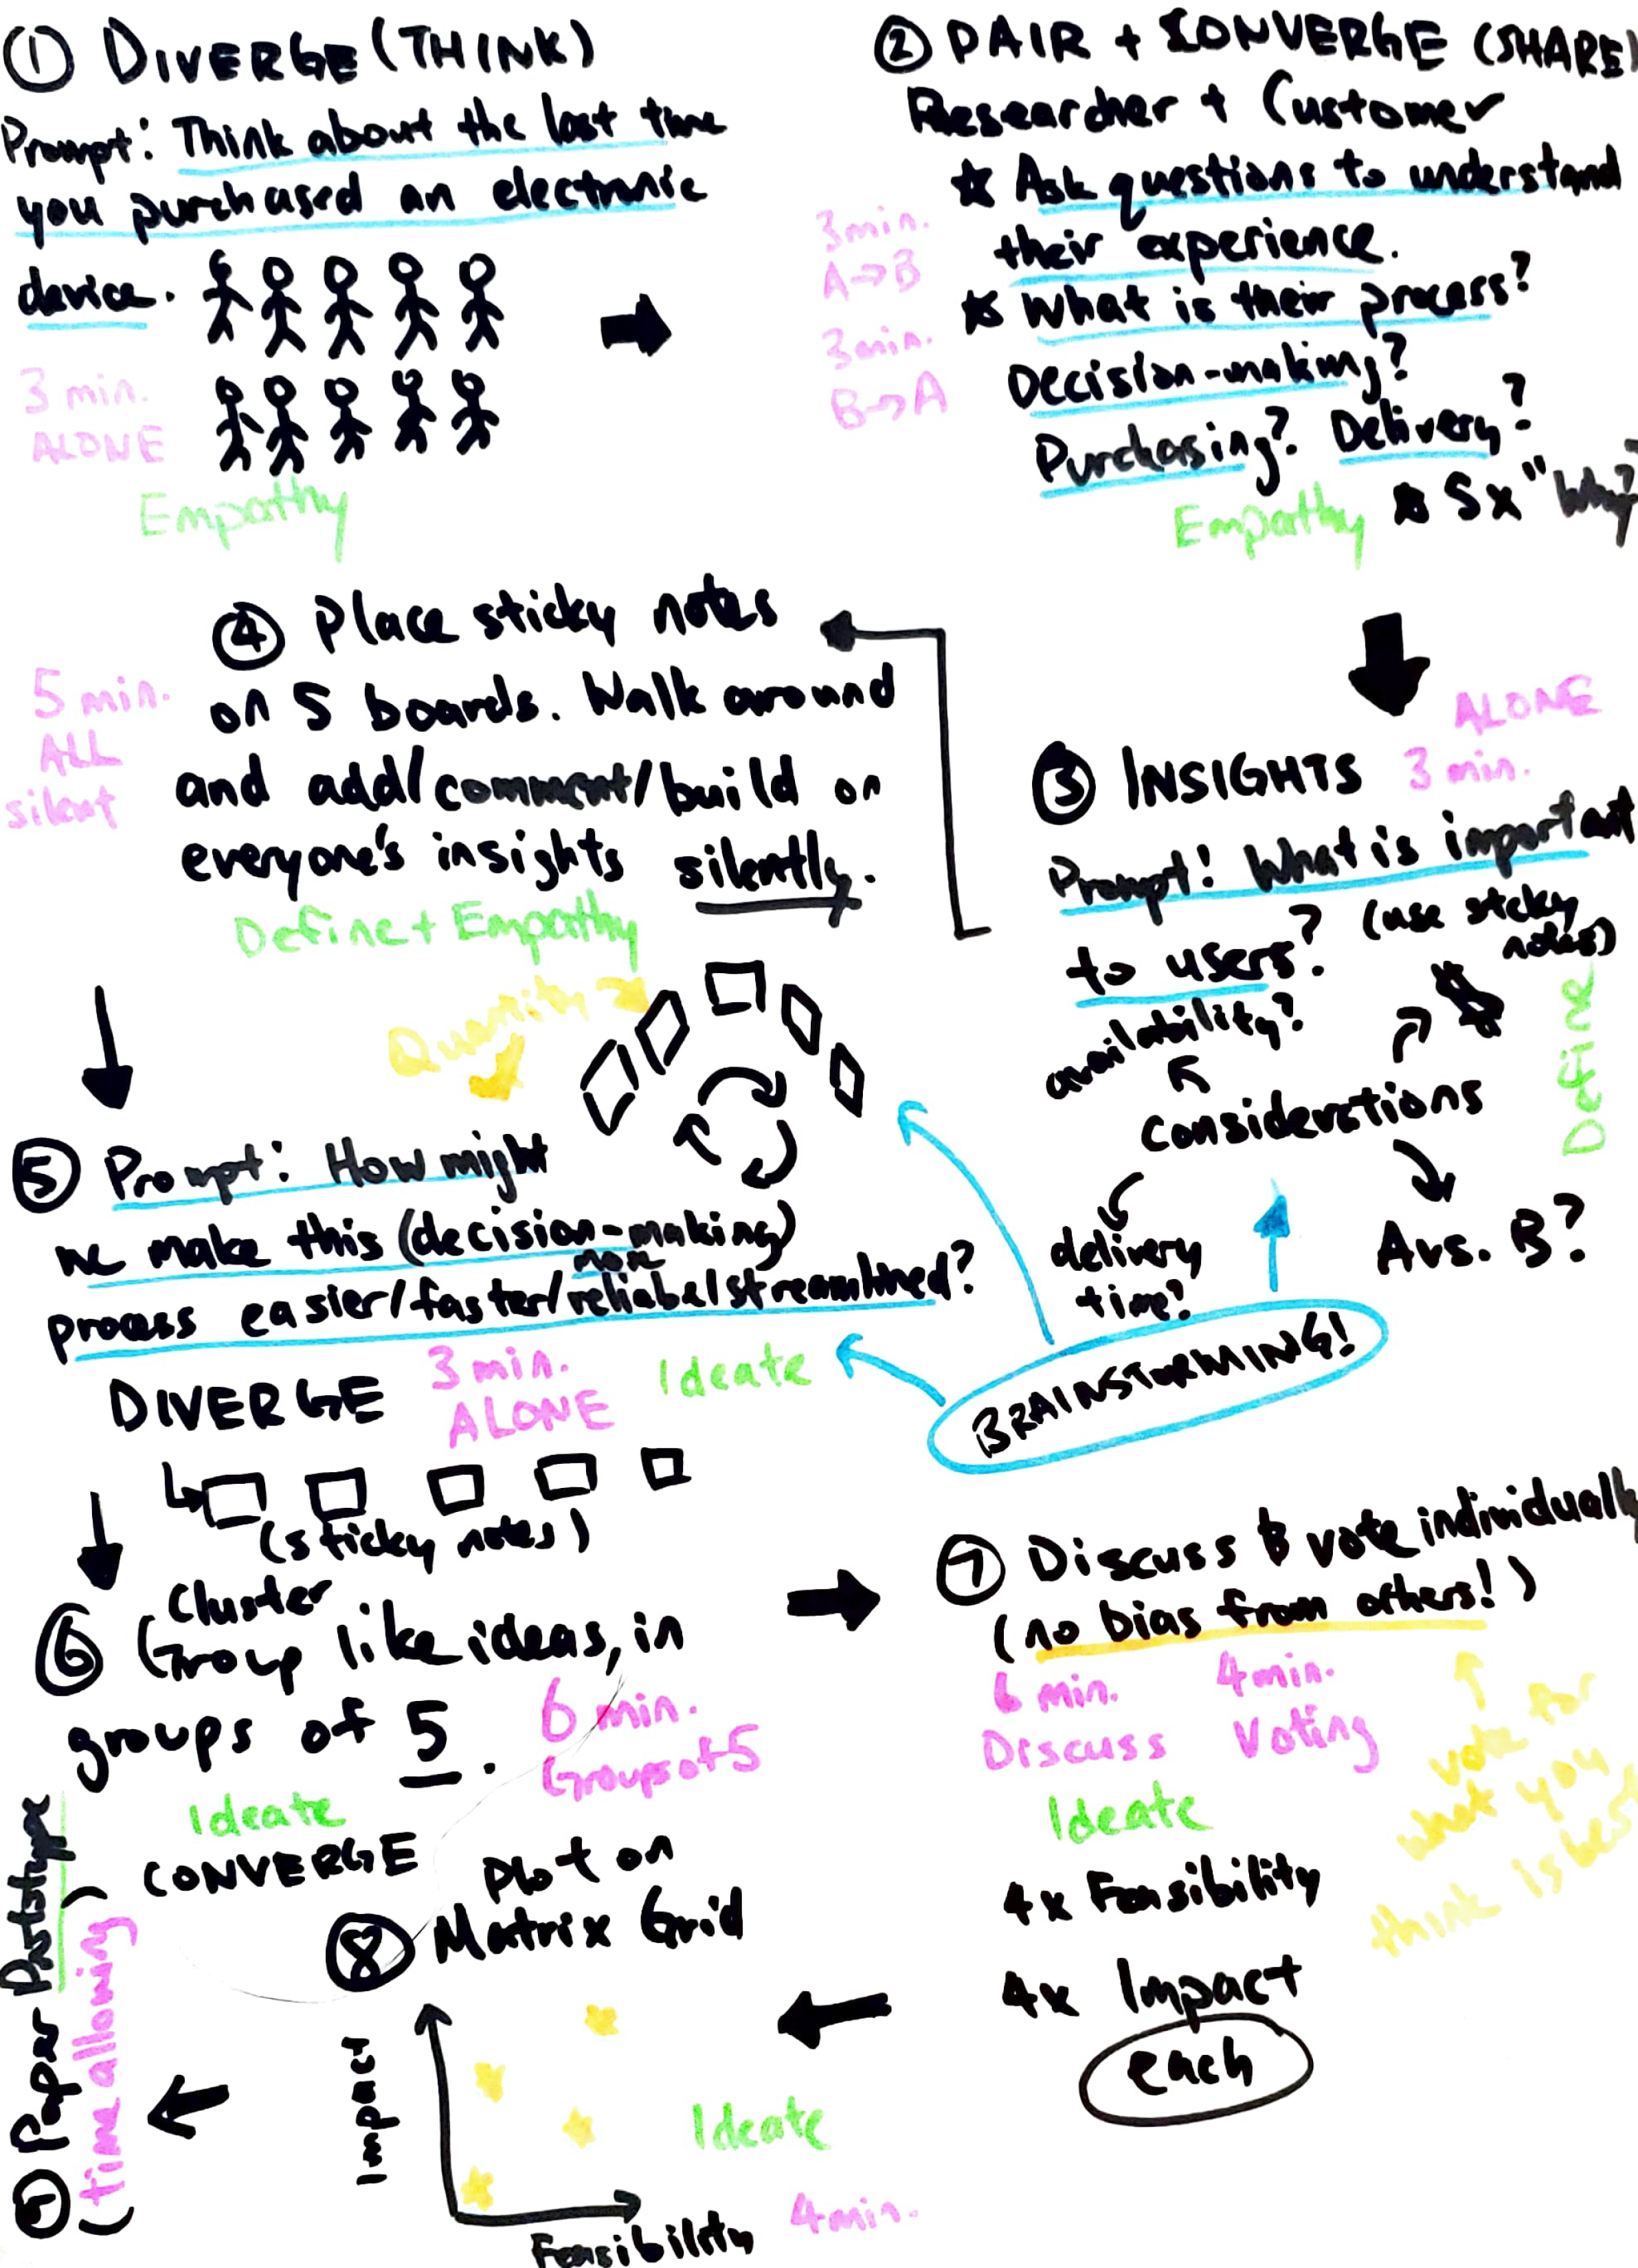 ① DIVERGE (THINK)
Prompt: Think about the last time
you purchased an electronic
device.
3 min.
ALONE
Empathy
② PAIR + CONVERGE (SHARE)
Researcher + Customer
☆ Ask questions to understand
their experience.
☆ What is their process?
Decision-making?
Purchasing? Delivery?
☆ 5x "Why?"
3 min.
A→B
3 min.
B→A
Empathy
③ INSIGHTS
ALONE
3 min.
Prompt! What is important
to users? (use sticky
notes)
availability?
$
considerations
delivery
time?
A vs. B?
Define
④ Place sticky notes
on 5 boards. Walk around
and add/comment/build on
everyone's insights silently.
5 min.
ALL
silent
Define + Empathy
Quantity
BRAINSTORMING!
⑤ Prompt: How might
we make this (decision-making)
more
process easier/faster/reliabel streamlined?
DIVERGE
3 min.
ALONE
Ideate
(sticky notes)
⑥ Cluster
Group like ideas, in
groups of 5.
6 min.
Groups of 5
Ideate
CONVERGE
⑦ Discuss & vote individually
(no bias from others!)
6 min.
Discuss
4 min.
Voting
vote for
what you
think is best
Ideate
4x Feasibility
4x Impact
each
⑧ Plot on
Matrix Grid
Impact
Feasibility
Ideate
4 min.
⑨ Paper Prototype
(time allowing)